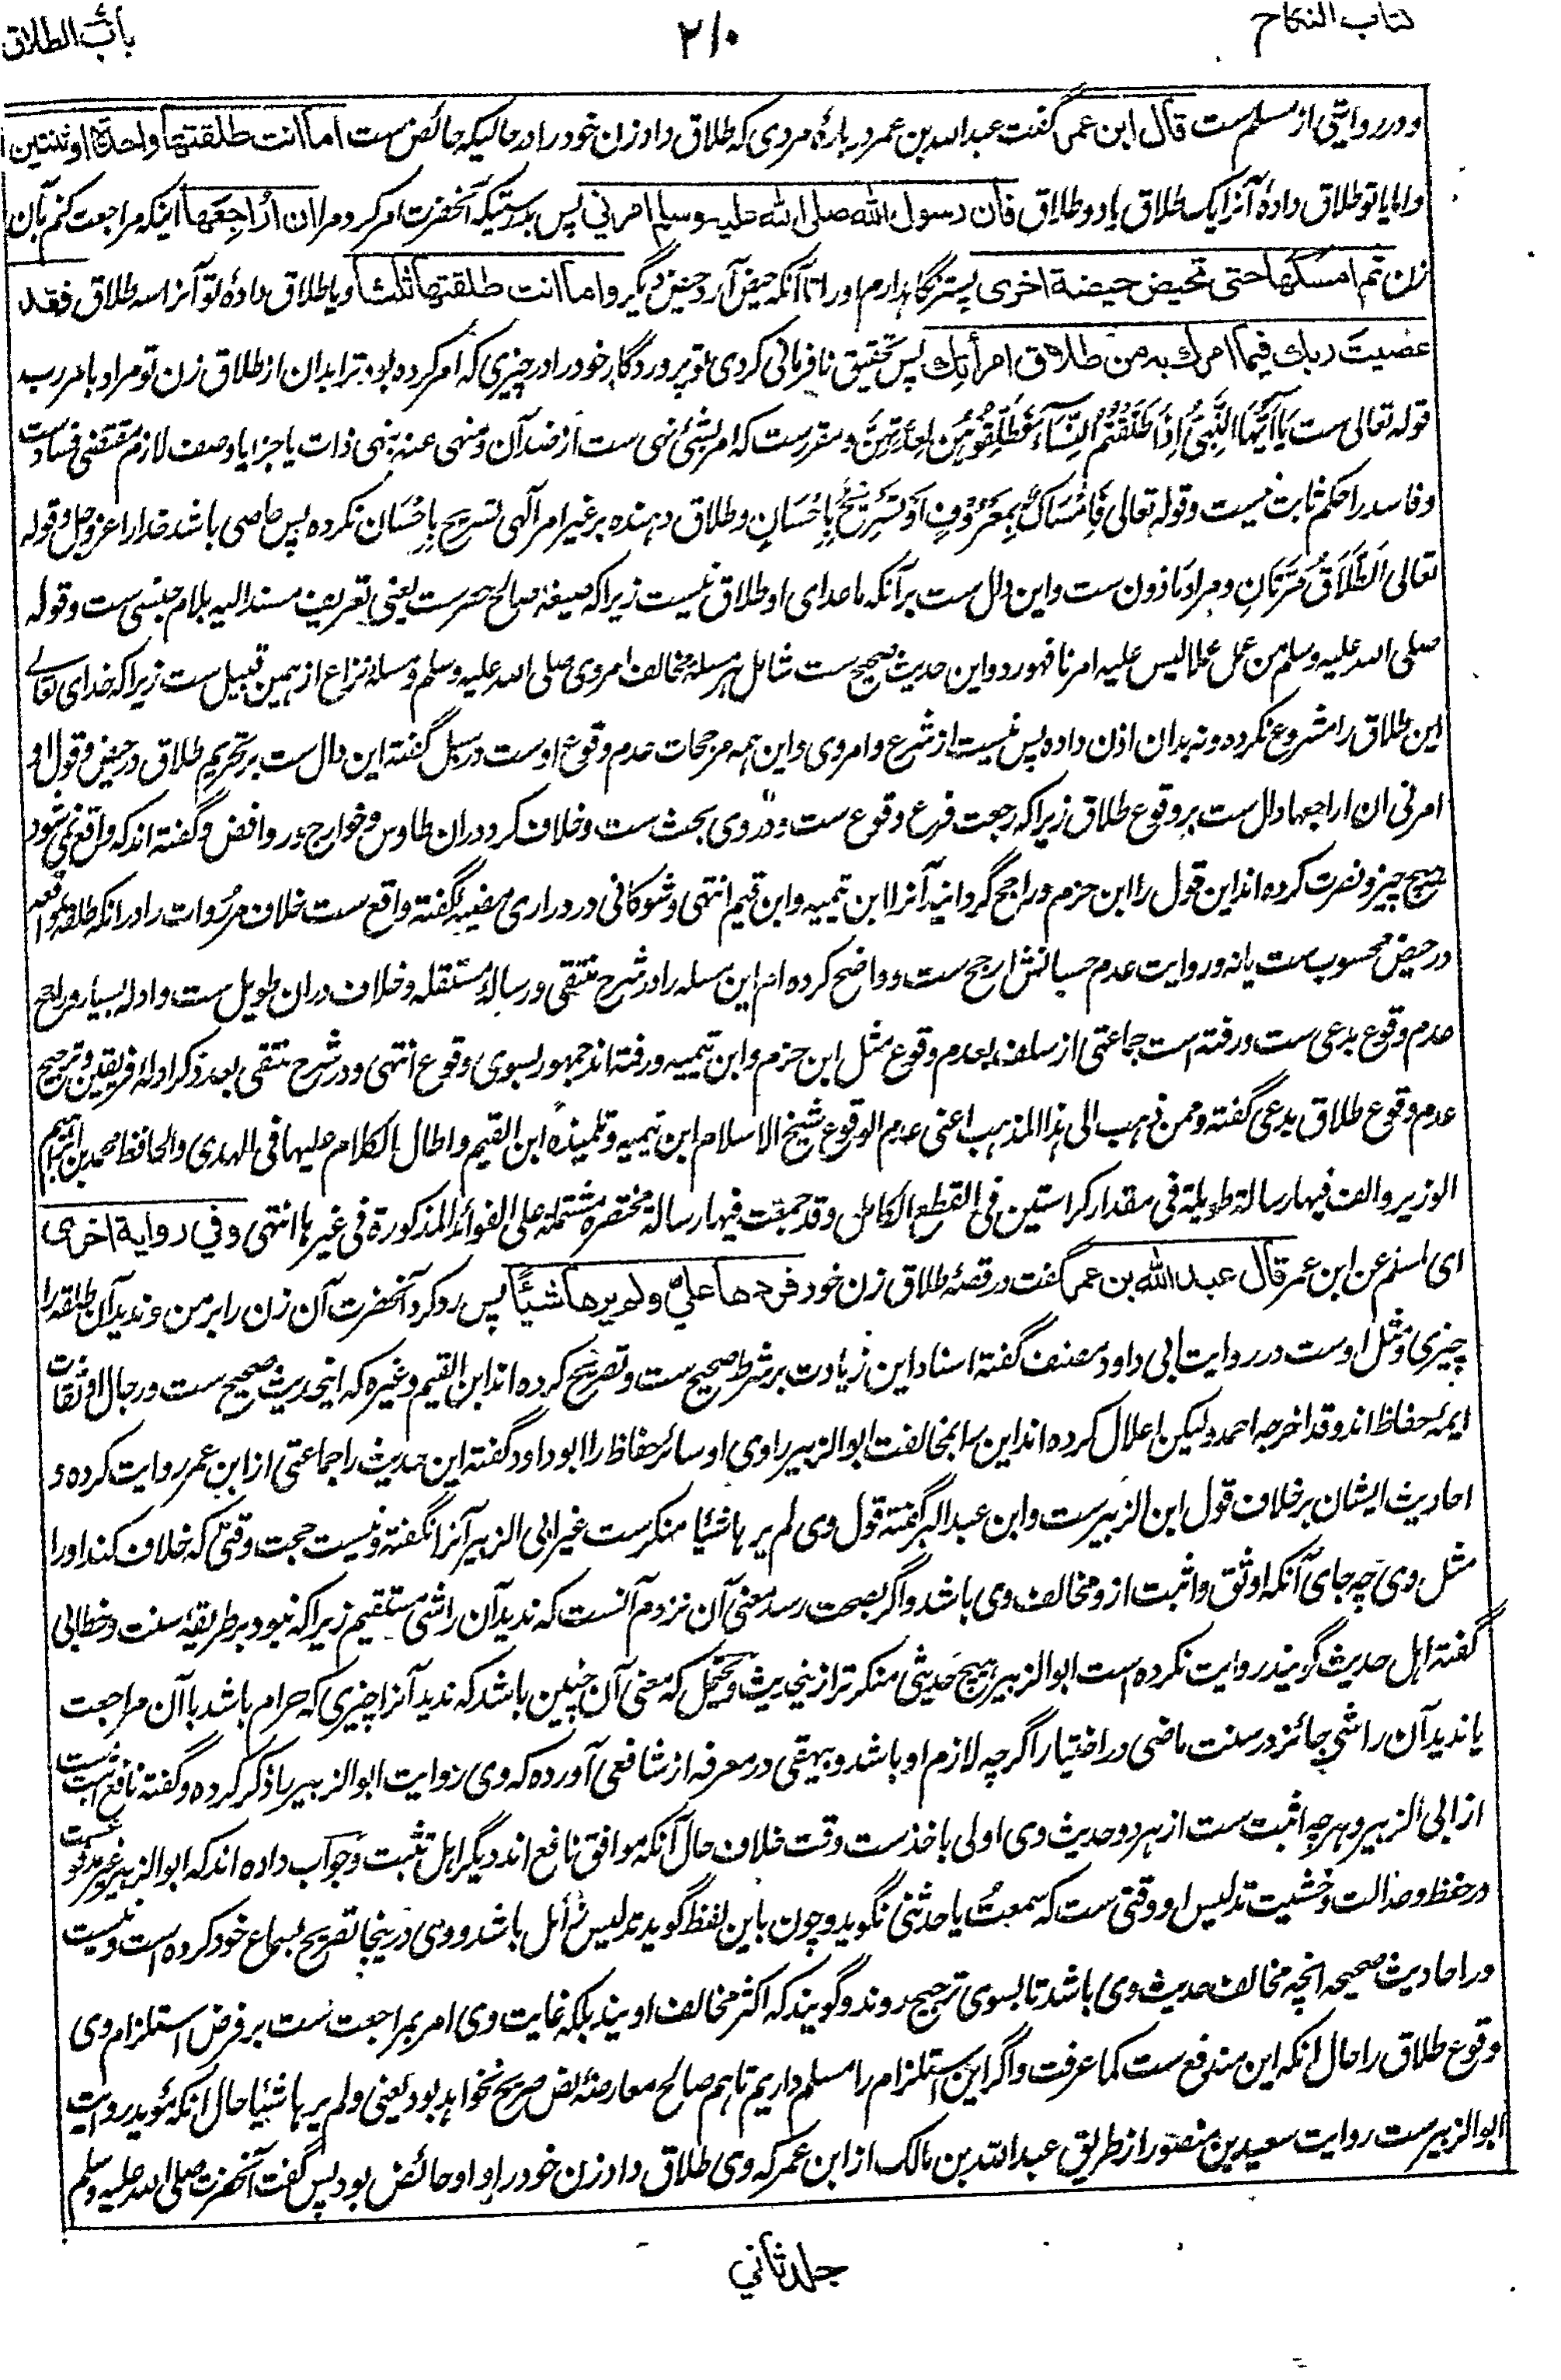 كتاب النكاح
٢١٠
باب الطلاق
و در روایتی از مسلم ست قال ابن عمر گفت عبدالله بن عمر درباره مردی که طلاق داد زن خود را در حالیکه حائض ست اما انت طلقتها واحدة او ثنتین
و اما یا تو طلاق داده آنرا یک طلاق یا دو طلاق فان رسول الله صلی الله علیه وسلم امرنی پس بدرستیکه آنحضرت امر کرد مرا ان اراجعها اینکه مراجعت کنم بآن
زن ثم امسکها حتی تحیض حیضة اخری پستر نگاه دارم او را تا آنکه حیض آرد حیض دیگر و اما انت طلقتها ثلثا و یا طلاق داده تو آنرا سه طلاق فقد
عصیت ربك فیما امرك به من طلاق امرأتك پس تحقیق نافرمانی کردی تو پروردگار خود را در چیزی که امر کرده بود ترا بدان از طلاق زن تو مراد بامر رب
قوله تعالی ست یَا أَیُّهَا النَّبِیُّ إِذَا طَلَّقْتُمُ النِّسَآءَ فَطَلِّقُوهُنَّ لِعِدَّتِهِنَّ و مقررست که امر بشئ نهی ست از ضد آن و منهی عنه بنهی ذات یا جزء یا وصف لازم مقتضی فسادست
و فاسد را حکم ثابت نیست و قوله تعالی فَإِمْسَاكٌ بِمَعْرُوفٍ أَوْ تَسْرِیحٌ بِإِحْسَانٍ و طلاق دهنده بر غیر امر آلهی تسریح بِإِحْسَان نکرده پس عاصی باشد خدا را عز و جل و قوله
تعالی اَلطَّلَاقُ مَرَّتَانِ و مراد ماذون ست و این دال ست بر آنکه ماعدای او طلاق نیست زیرا که صیغه صالح حصرست یعنی تعریف مسند الیه بلام جنسی ست و قوله
صلی الله علیه وسلم من عمل عملا لیس علیه امرنا فهو رد و این حدیث صحیح ست شامل هر مسئله مخالف امر وی صلی الله علیه وسلم و مسئله نزاع از همین قبیل ست زیرا که خدای تعالے
این طلاق را مشروع نکرده و نه بدان اذن داده پس نیست از شرع و امر وی و این همه مرجحات عدم وقوع اوست در سبل گفته این دال ست بر تحریم طلاق در حیض و قول او
امرنی ان اراجعها دال ست بر وقوع طلاق زیرا که رجعت فرع وقوع ست و در وی بحث ست و خلاف کرد دران طاوس و خوارج و روافض و گفته اند که واقع نمی شود
هیچ چیز و نصرت کرده اند این قول را ابن حزم و راجح گردانید آنرا ابن تیمیه و ابن قیم انتهی و شوکانی در دراری مضیه گفته واقع ست خلاف مر روات را در آنکه طلقه واقعه
در حیض محسوب ست یا نه و روایت عدم حسبانش ارجح ست و واضح کرده ام این مسئله را در شرح منتقی و رساله مستقله و خلاف دران طویل ست و ادله بسیار و راجح
عدم وقوع بدعی ست و رفته است جماعتی از سلف بعدم وقوع مثل ابن حزم و ابن تیمیه و رفته اند جمهور بسوی وقوع انتهی و در شرح منتقی بعد ذکر ادله فریقین و ترجیح
عدم وقوع طلاق بدعی گفته و ممن ذهب الی هذا المذهب اعنی عدم الوقوع شیخ الاسلام ابن تیمیه و تلمیذه ابن القیم و اطال الکلام علیها فی الهدی و الحافظ محمد بن ابراهیم
الوزیر و الف فیها رسالة طویلة فی مقدار کراستین فی القطع الکامل و قد جمعت فیها رسالة مختصرة مشتملة علی الفوائد المذکورة فی غیرها انتهی و فی روایة اخری
ای لمسلم عن ابن عمر قال عبد الله بن عمر گفت در قصه طلاق زن خود فردها علیّ ولم یرها شیئا پس رد کرد آنحضرت آن زن را بر من و ندید آن طلقه را
چیزی و مثل اوست در روایت ابی داود مصنف گفته اسناد این زیادت بر شرط صحیح ست و تصریح کرده اند ابن القیم و غیره که این حدیث صحیح ست و رجال او ثقات
ایمه حفاظ اند و قد اخرجه احمد و لیکن اعلال کرده اند این را بمخالفت ابو الزبیر راوی او سائر حفاظ را ابو داود گفته این حدیث را جماعتی از ابن عمر روایت کرده و
احادیث ایشان بر خلاف قول ابن الزبیرست و ابن عبد البر گفته قول وی لم یرها شئیا منکرست غیر ابی الزبیر آنرا نگفته و نیست حجت وقتی که خلاف کند او را
مثل وی چه جای آنکه اوثق و اثبت از و مخالف وی باشد و اگر بصحت رسد معنی آن نزدم آنست که ندید آن را شئ مستقیم زیرا که نبود بر طریقه سنت و خطابی
گفته اهل حدیث گویند روایت نکرده است ابو الزبیر هیچ حدیثی منکرتر از ین حدیث و یحتمل که معنی آن چنین باشد که ندید آنرا چیزی که حرام باشد با آن مراجعت
یا ندید آن را شئ جائز در سنت ماضی در اختیار اگرچه لازم او باشد و بیهقی در معرفه از شافعی آورده که وی روایت ابو الزبیر را ذکر کرده و گفته نافع اثبت ست
از ابی الزبیر و هرچه اثبت ست از هر دو حدیث وی اولی باخذست وقت خلاف حال آنکه موافق نافع اند دیگر اهل تثبت و جواب داده اند که ابو الزبیر غیر مدفوع ست
در حفظ و عدالت و خشیت تدلیس او وقتی ست که سمعتُ یا حدثنی نگوید و چون باین لفظ گوید تدلیس زائل باشد و وی درینجا تصریح بسماع خود کرده است و نیست
در احادیث صحیحه انچه مخالف حدیث وی باشد تا بسوی ترجیح روند و گویند که اکثر مخالف اویند بلکه غایت وی امر بمراجعت ست بر فرض استلزام وی
وقوع طلاق را حال آنکه این مندفع ست کما عرفت و اگر این استلزام را مسلم داریم تا هم صالح معارضه نص صریح نخواهد بود یعنی ولم یرها شئیا حال آنکه مؤید روایت
ابو الزبیرست روایت سعید بن منصور از طریق عبد الله بن مالک از ابن عمر که وی طلاق داد زن خود را و او حائض بود پس گفت آنحضرت صلی الله علیه وسلم
جلد ثانی